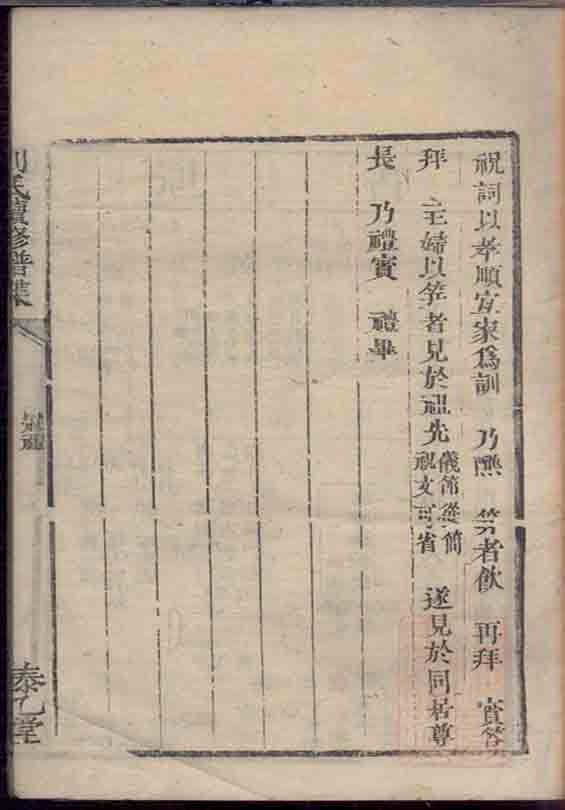 祝詞以孝順宜家爲訓　乃醮　笄者飲　再拜　賓答
拜　主婦以笄者見於祖先儀節從簡祝文可省　遂見於同居尊
長　乃禮賓　禮畢
劉氏續修譜牒
笄禮
泰乙堂